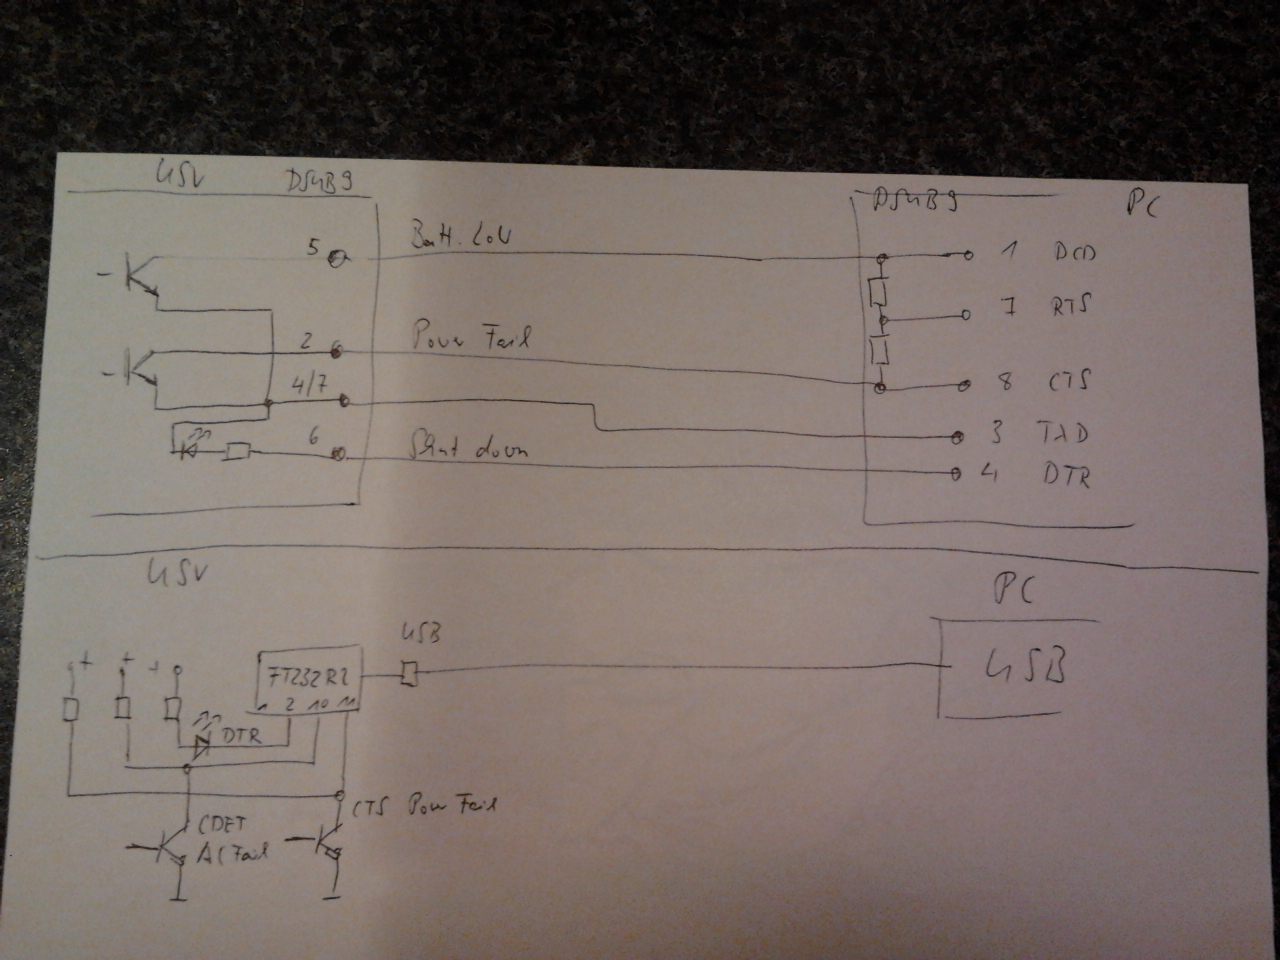 USV DSUB9
DSUB9 PC
5 Batt. Low 1 DCD
7 RTS
2 Power Fail
4/7 8 CTS
3 TXD
6 Shut down 4 DTR
USV
PC
USB
+ + + FT232R2 USB
1 2 10 11
DTR
CTS Power Fail
CDET
AC Fail